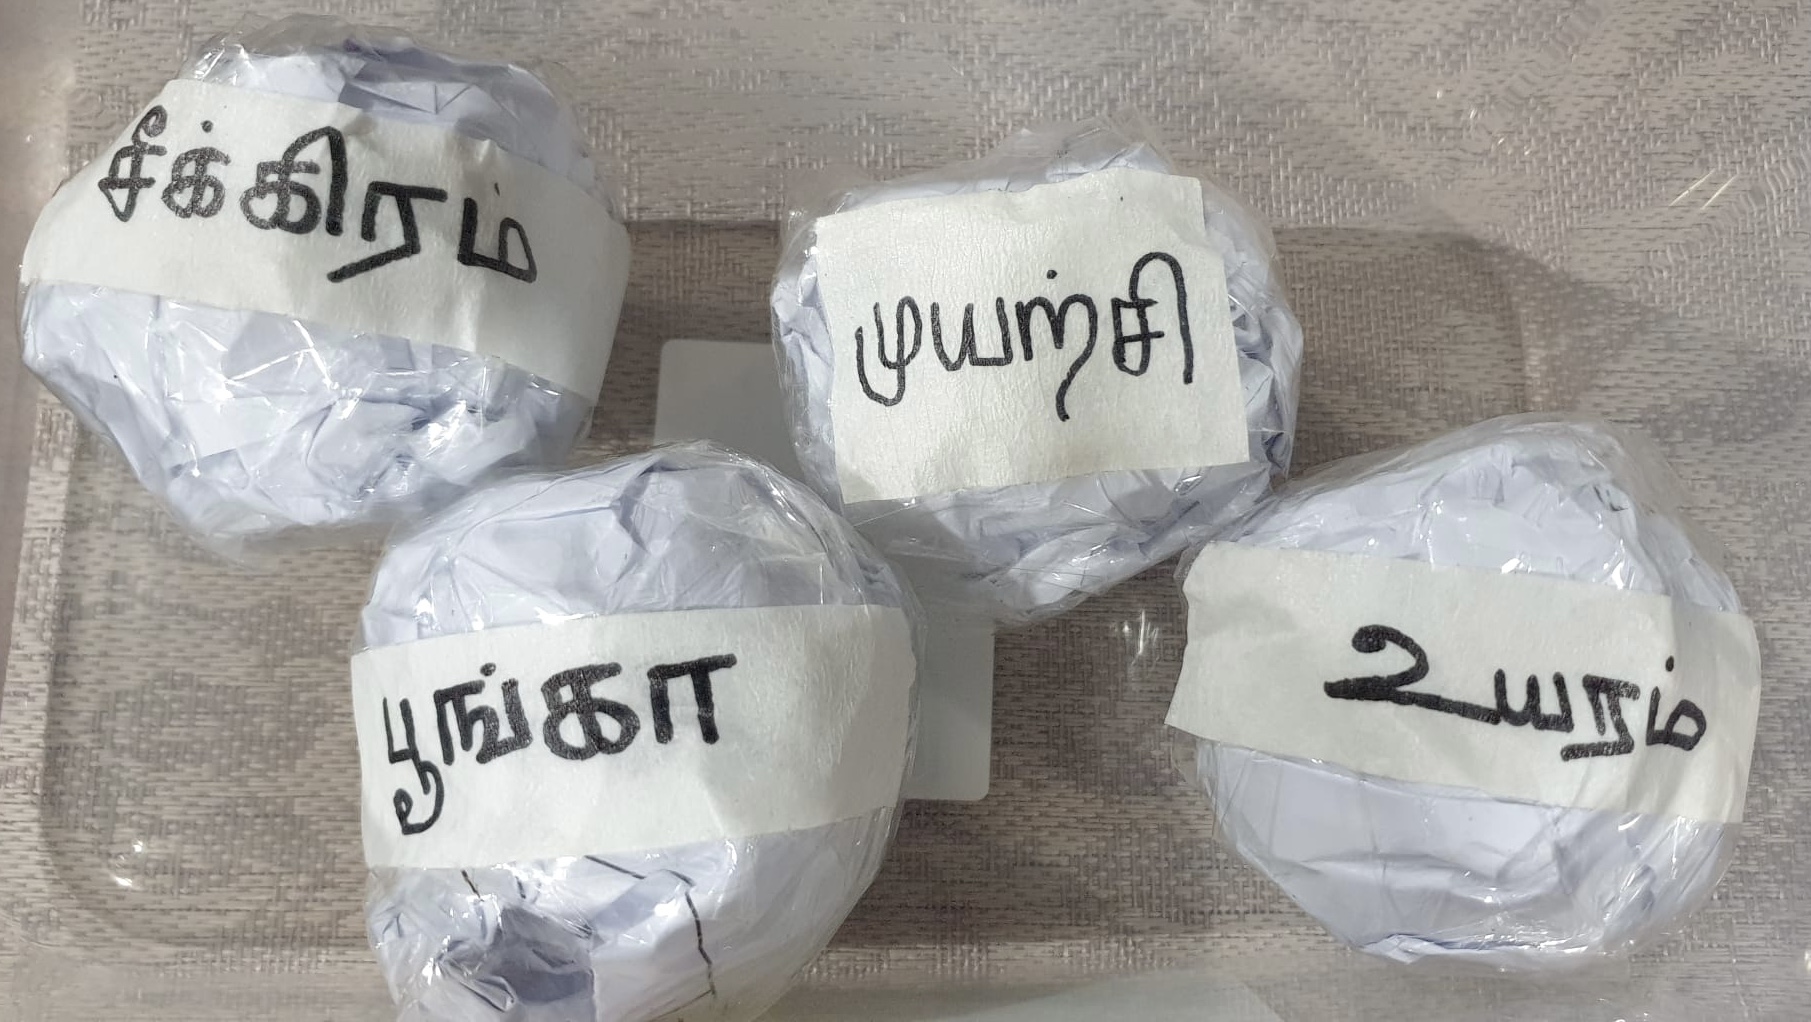 சீக்கிரம்
முயற்சி
பூங்கா
உயரம்